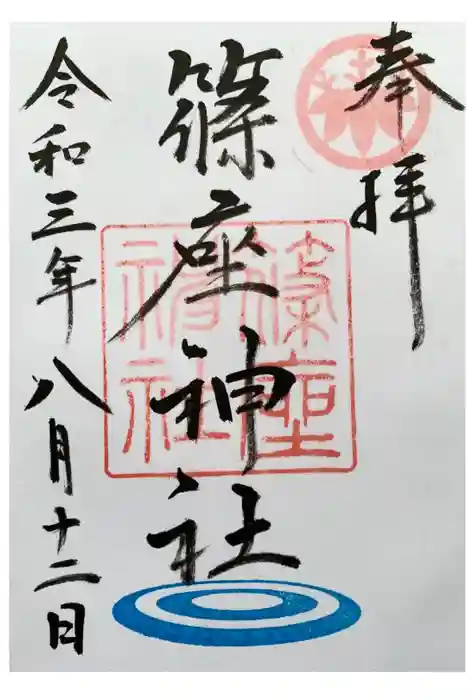 奉拝
篠座神社
篠座
神社
令和三年八月十二日